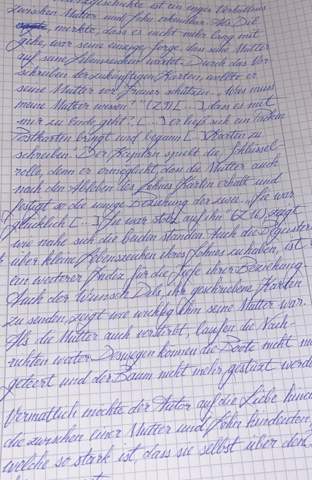 geschichte ist ein enges Verhältnis
zwischen Mutter und Sohn erkennbar. Als Dil
merkte, dass es nicht mehr lang mit
geht, war seine einzige Sorge, dass seine Mutter
auf seine Lebenszeichen wartet. Durch das Vor
schreiben der zukünftigen Karten, wollte er
seine Mutter vor Trauer schützen. „Was muss
meine Mutter wissen?" (Z9) [...] dass es mit
mir zu Ende geht? [...] er ließ sich ein Packen
Postkarten bringt und begann [...] Karten zu
schreiben. Der Kapitän spielt die Schlüssel
rolle, denn er ermöglicht, dass die Mutter auch
nach dem Ableben des Sohnes Karten erhält und
festigt so die innige Beziehung der zwei. „Sie war
glücklich [...] Sie war stolz auf ihn" (Z16), zeigt
wie nahe sich die beiden standen. Auch die
über kleine Lebenszeichen ihres Sohnes zu haben, ist
ein weiterer Indiz für die Tiefe ihrer Beziehung.
Auch der Wunsch Dils, ihr geschriebene Karten
zu senden, zeigt wie wichtig ihm seine Mutter war.
Als die Mutter auch verstirbt, laufen die Nach
richten weiter. Deswegen können die Boote nicht m
geteert und der Baum nicht mehr gestürzt werde
Vermutlich möchte der Autor auf die Liebe hind
die zwischen einer Mutter und Sohn hindeuten,
welche so stark ist, dass sie selbst über den